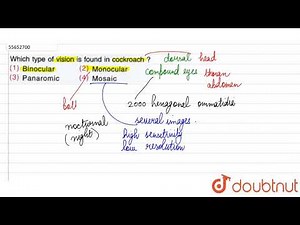 55652700
Which type of vision is found in cockroach ?
(1) Binocular (2) Monocular
(3) Panaromic (4) Mosaic
dorsal head
compound eyes thorax
abdomen
ball
2000 hexagonal ommatidia
nocturnal
(night)
several images.
high sensitivity
low resolution
doubtnut